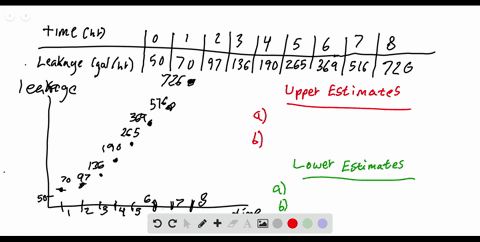 time (hr) 0 1 2 3 4 5 6 7 8
Leakage (gal/hr) 50 70 97 136 190 265 369 516 720
leakage
726
516
369
265
190
136
97
70
50
1 2 3 4 5 6 7 8
time
Upper Estimates
a)
b)
Lower Estimates
a)
b)